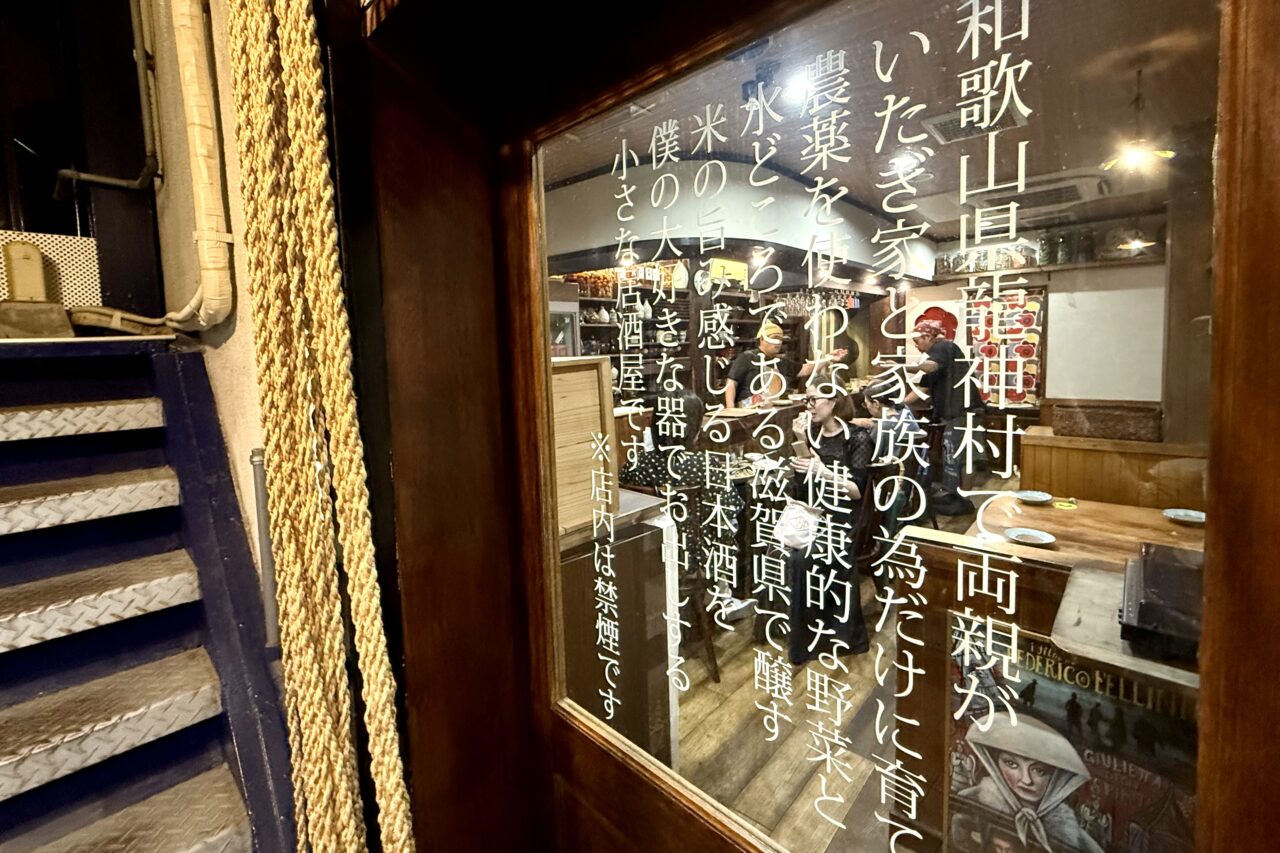 和歌山県龍神村で両親が
いたぎ家と家族の為だけに育て
農薬を使わない健康的な野菜と
水どころである滋賀県で醸す
米の旨み感じる日本酒を
僕の大好きな器でお出しする
小さな居酒屋です
※店内は禁煙です
FEDERICO FELLINI
GIULIETTA